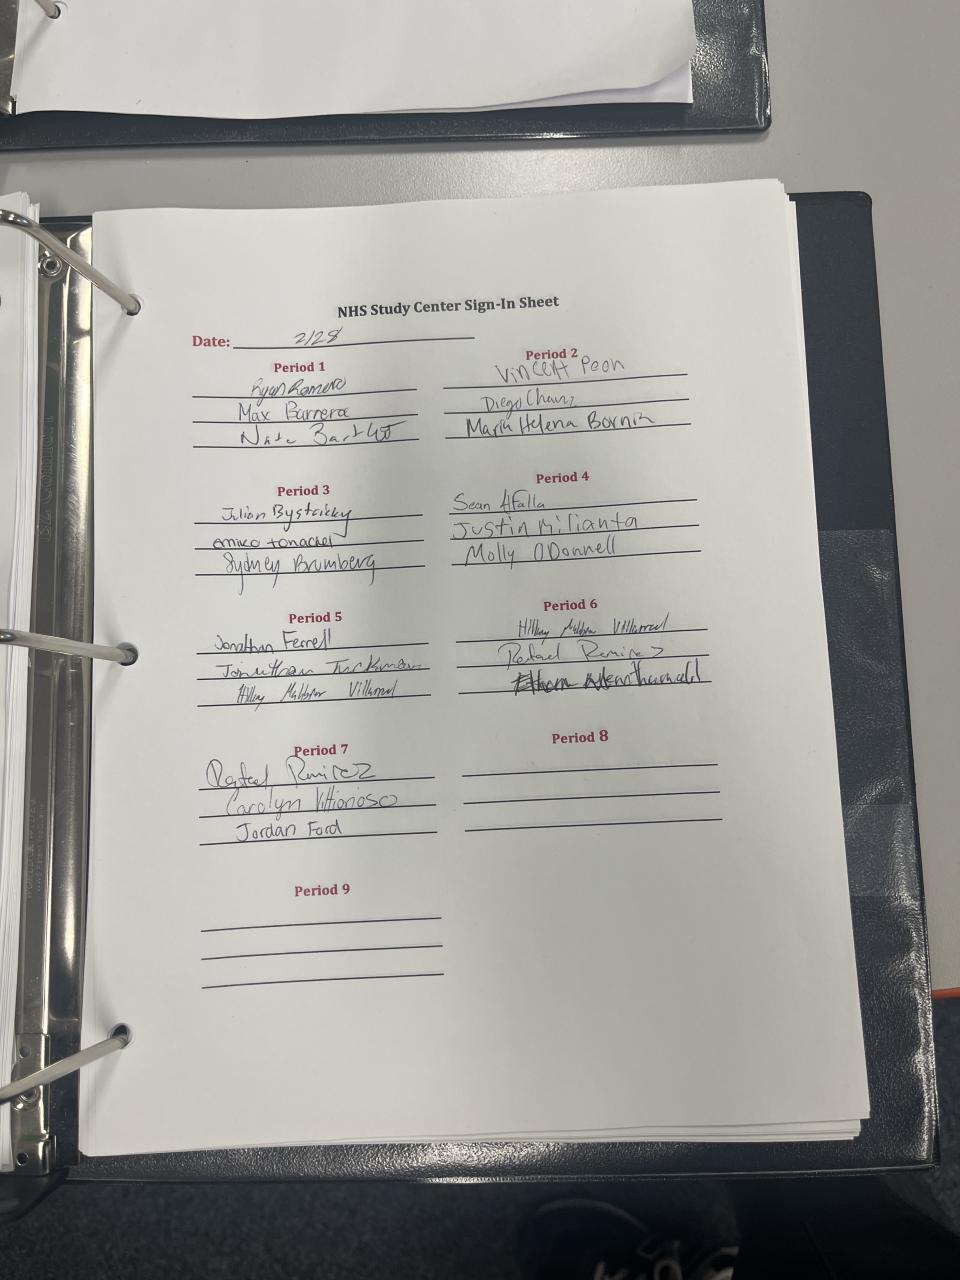 NHS Study Center Sign-In Sheet
Date: 2/28
Period 1
Ryan Romero
Max Barrera
Nate
Period 2
Vincent Peon
Diego
Maria Helena Bornia
Period 3
Julian Bystricky
emiko
Sydney Brumberg
Period 4
Sean Afalla
Justin Milianta
Molly ODonnell
Period 5
Jonathan Ferrell
Jonathan Tuckman
Villarreal
Period 6
Villarreal
Rafael Ramirez
Period 7
Rafael Ramirez
Carolyn Vittorioso
Jordan Ford
Period 8
Period 9